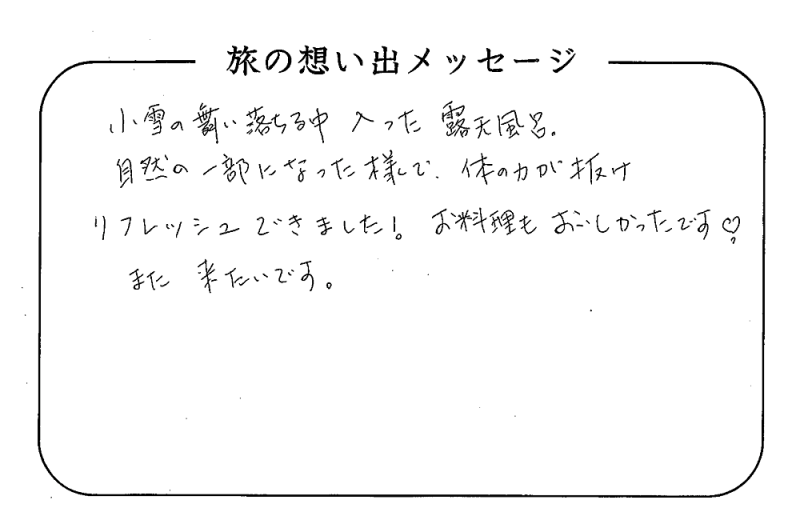 旅の想い出メッセージ
小雪の舞い落ちる中 入った 露天風呂.
自然の一部になった様で、体の力が抜け
リフレッシュできました! お料理もおいしかったです♡
また 来たいです。